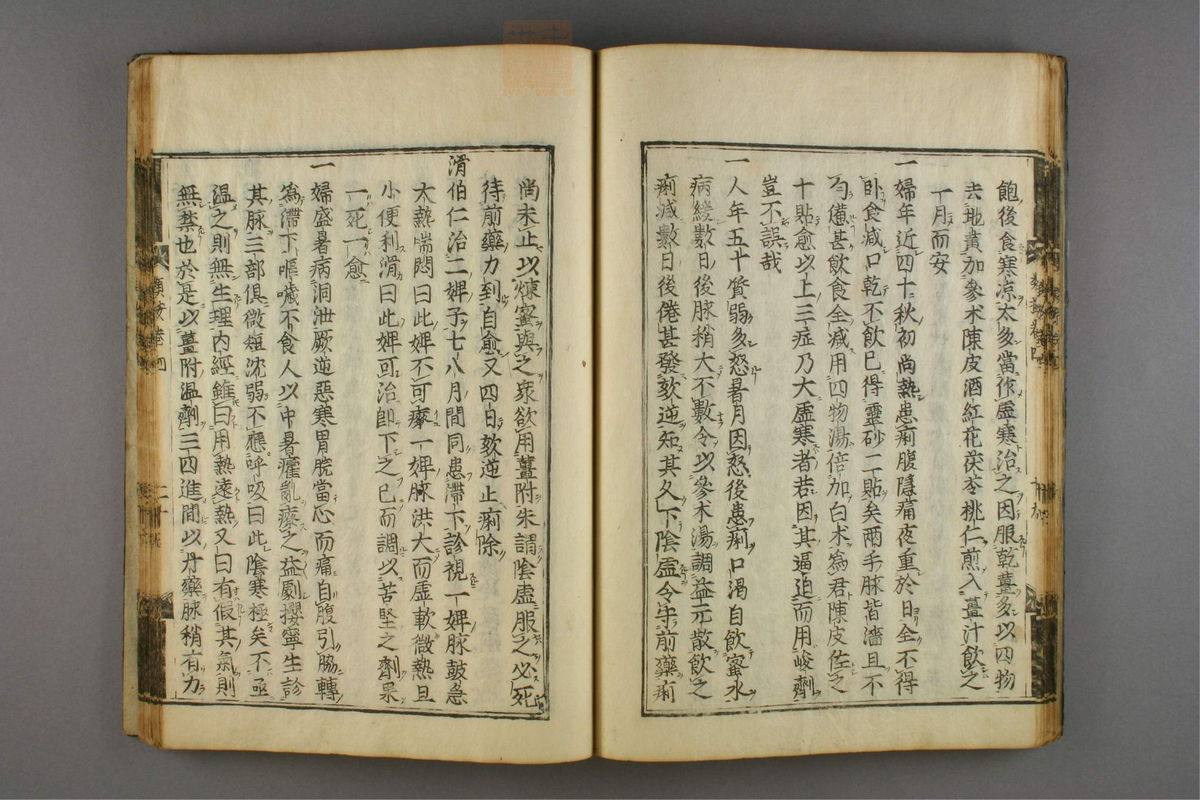 飽後食寒凉太多當作虛寒治之因服乾薑多以四物
去地黄加參朮陳皮酒紅花茯苓桃仁煎入薑汁飮之
一月而安
一婦年近四十秋初尚熱患痢腹隱痛夜重於日全不得
卧食減口乾不飮已得靈砂二貼矣兩手脉皆濇且不
匀憊甚飮食全減用四物湯倍加白朮爲君陳皮佐之
十貼愈以上三症乃大虛寒者若因其逼迫而用峻劑
豈不誤哉
一人年五十質弱多怒暑月因怒後患痢口渴自飮蜜水
病緩數日後脉稍大不數令以參朮湯調益元散飮之
痢減數日後倦甚發欬逆知其久下陰虛令守前藥痢
尚未止以煉蜜與之衆欲用薑附朱謂陰虛服之必死
待前藥力到自愈又四日欬逆止痢除
滑伯仁治二婢子七八月間同患滯下診視一婢脉皷急
太熱喘悶曰此婢不可療一婢脉洪大而虛軟微熱且
小便利滑曰此婢可治卽下之已而調以苦堅之劑果
一死一愈
一婦盛暑病洞泄厥逆惡寒胃脘當心而痛自腹引脇轉
爲滯下嘔噦不食人以中暑癨亂療之益劇攖寧生診
其脉三部俱微短沈弱不應呼吸曰此陰寒極矣不亟
溫之則無生理內經雖曰用熱遠熱又曰有假其氣則
無禁也於是以薑附溫劑三四進間以丹藥脉稍有力
類案卷四
十九
類案卷四
二十